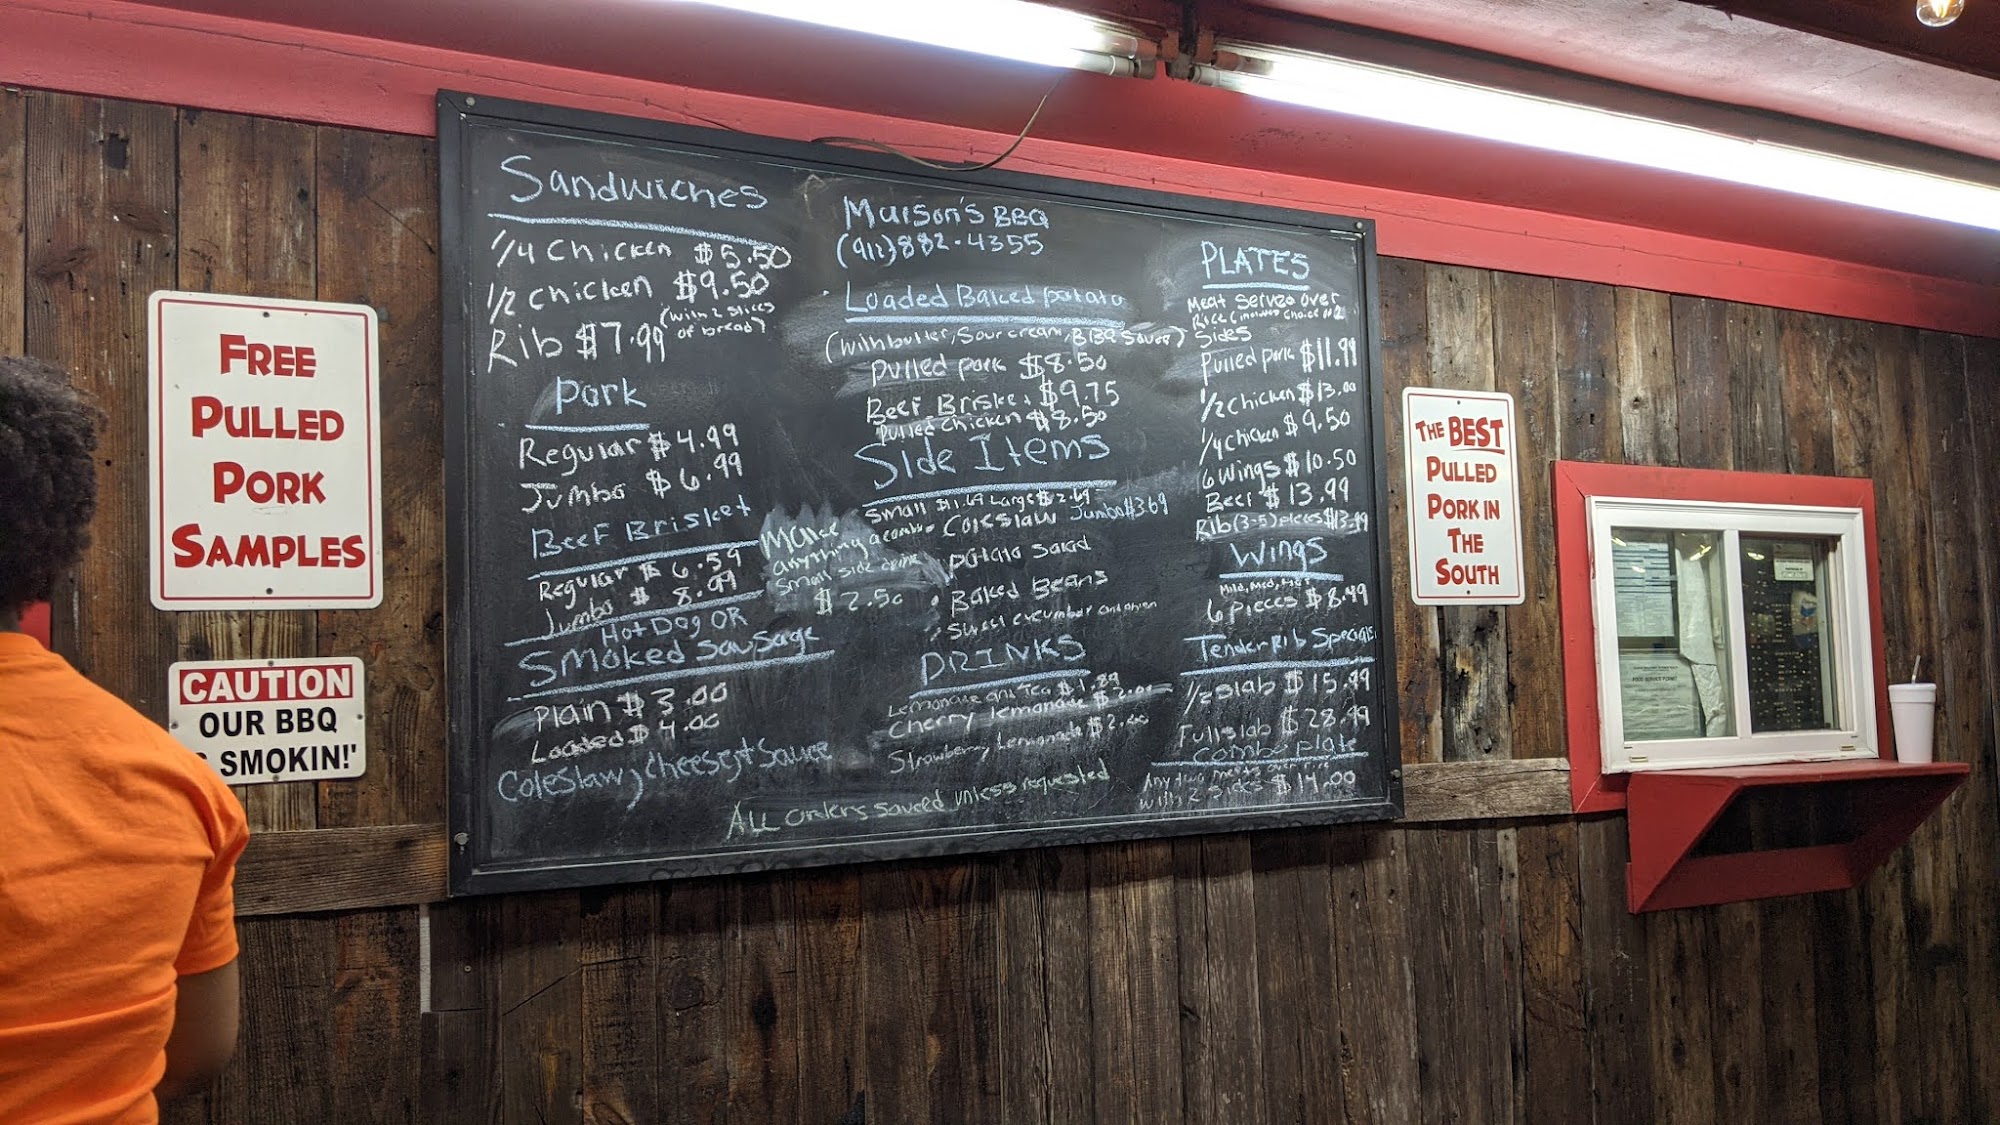 FREE
PULLED
PORK
SAMPLES
CAUTION
OUR BBQ
SMOKIN!'
Sandwiches
1/4 Chicken $5.50
1/2 Chicken $9.50
(with 2 slices
of bread)
Rib $7.99
Pork
Regular $4.99
Jumbo $6.99
Beef Brisket
Regular $6.59
Jumbo $8.99
Hot Dog OR
Smoked Sausage
Plain $3.00
Loaded $4.00
Coleslaw, Cheese, + Sauce
Make
anything a combo
Small side drink
$2.50
BBQ
882-4355
Loaded Baked potato
(with butter, Sour cream, BBQ Sauce)
Pulled pork $8.50
Beef Brisket $9.75
Pulled Chicken $8.50
Side Items
Small $1.69 Large $2.69
Jumbo $3.69
Coleslaw
potato Salad
Baked Beans
Sweet cucumber and onion
DRINKS
Lemonade and Tea $1.89
Cherry lemonade $2.00
Strawberry Lemonade $2.00
ALL orders sauced unless requested
PLATES
Meat served over
Rice (includes choice of 2
Sides
Pulled pork $11.99
1/2 Chicken $13.00
1/4 Chicken $9.50
6 Wings $10.50
Beef $13.99
Rib (3-5) pieces $13.99
Wings
Mild, Med, Hot
6 pieces $8.49
Tender Rib Special
1/2 slab $15.99
Full slab $28.99
Combo plate
Any two meats over rice
with 2 sides $14.00
THE BEST
PULLED
PORK IN
THE
SOUTH